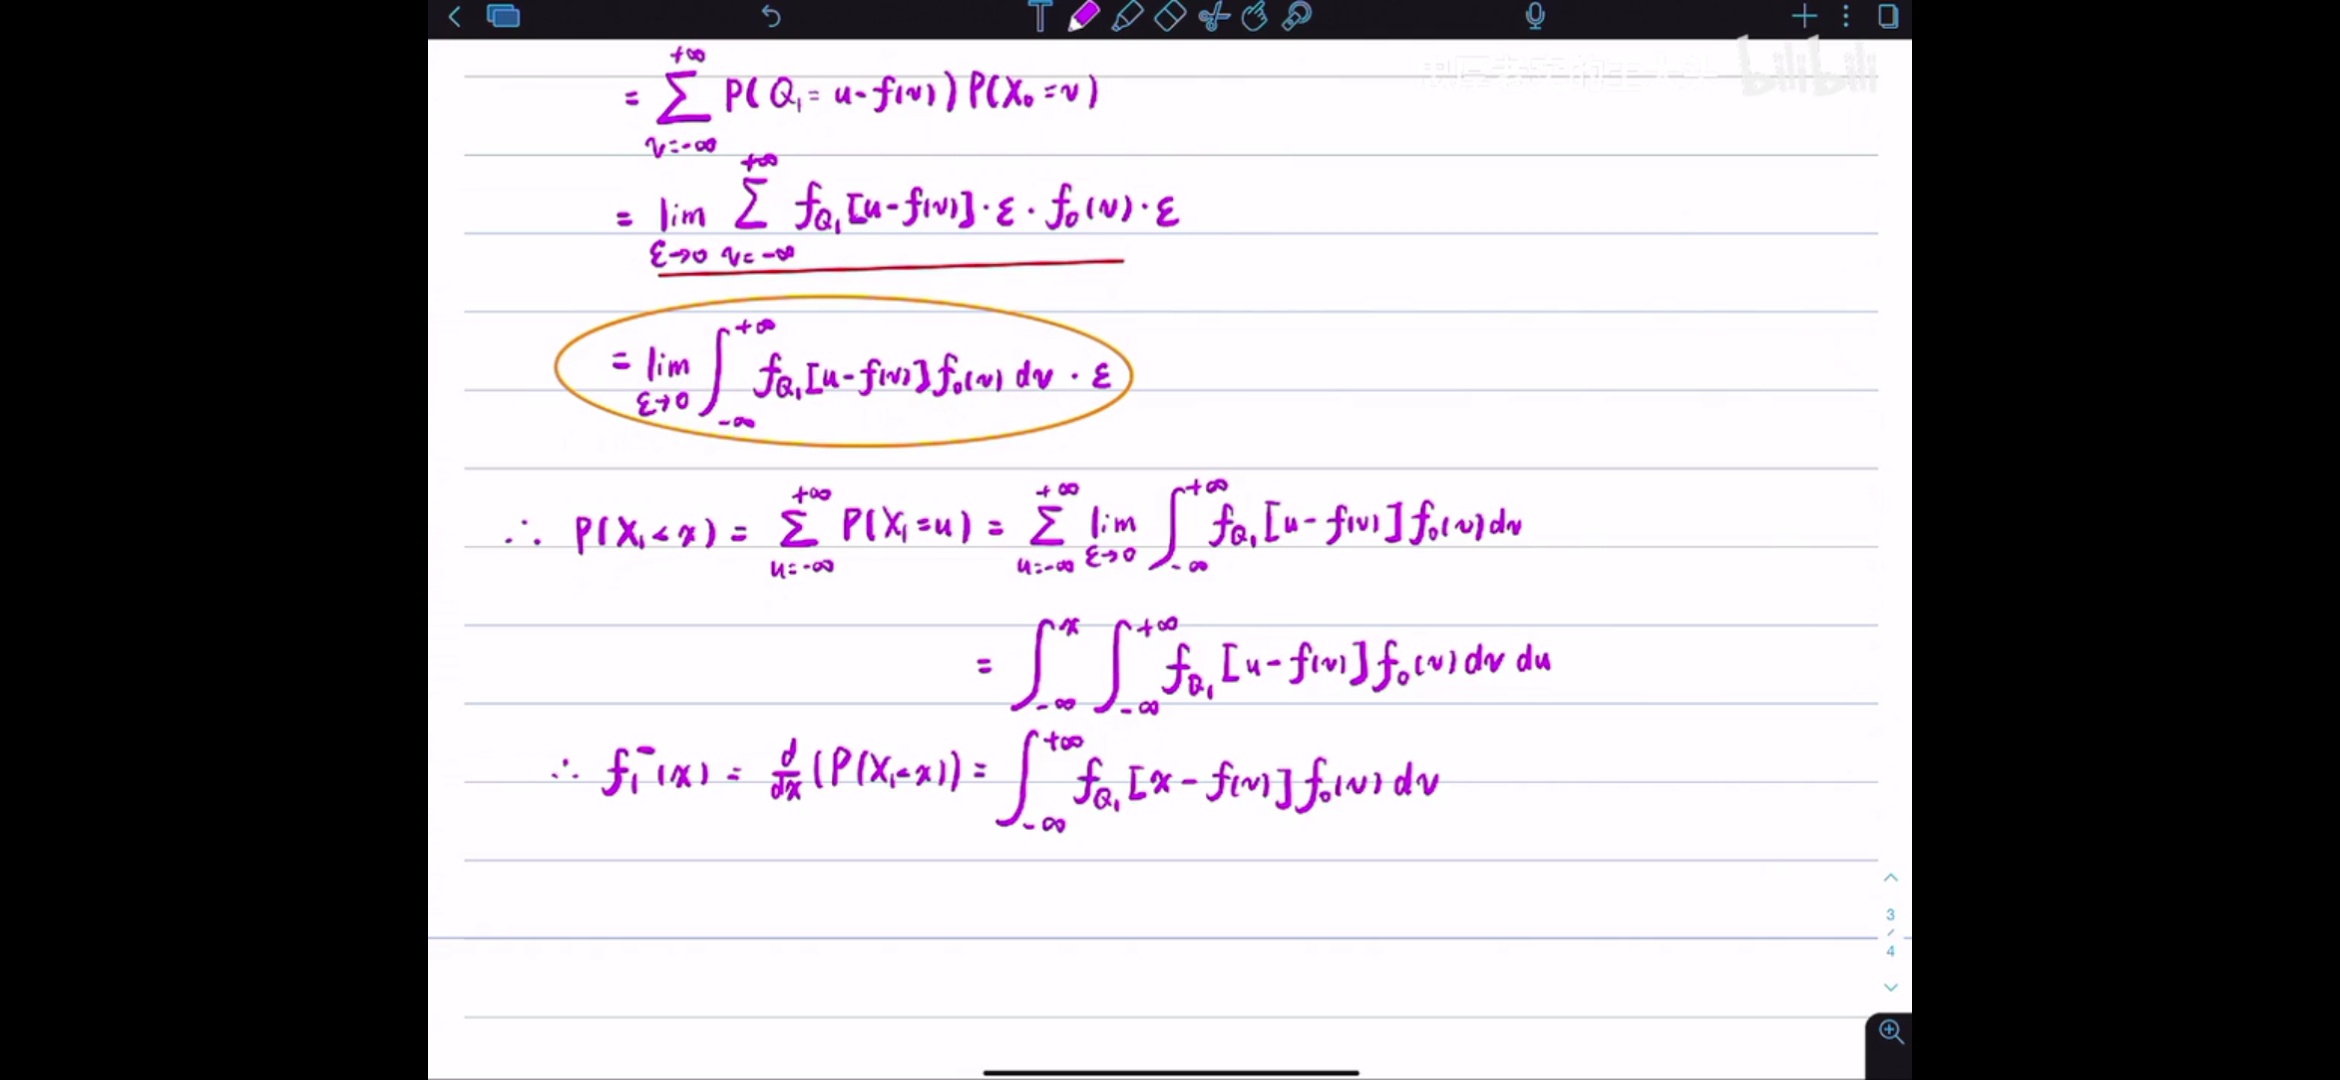 = ∑_{v=-∞}^{+∞} P(Q₁ = u - f(v)) P(X₀ = v)
bilibili
= lim_{ε→0} ∑_{v=-∞}^{+∞} f_{Q₁}[u - f(v)] · ε · f₀(v) · ε
= lim_{ε→0} ∫_{-∞}^{+∞} f_{Q₁}[u - f(v)] f₀(v) dv · ε
∴ P(X₁ < x) = ∑_{u=-∞}^{+∞} P(X₁ = u) = ∑_{u=-∞}^{+∞} lim_{ε→0} ∫_{-∞}^{+∞} f_{Q₁}[u - f(v)] f₀(v) dv
= ∫_{-∞}^{x} ∫_{-∞}^{+∞} f_{Q₁}[u - f(v)] f₀(v) dv du
∴ f₁⁻(x) = d/dx (P(X₁ < x)) = ∫_{-∞}^{+∞} f_{Q₁}[x - f(v)] f₀(v) dv
3
/
4